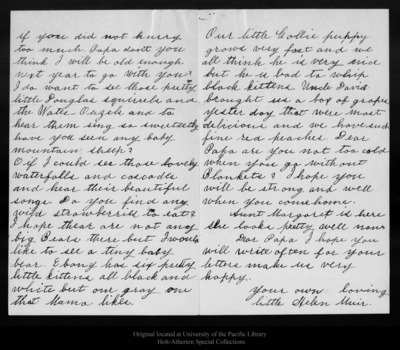 if you did not hurry
too much Papa dont you
think I will be old enough
next year to go with you?
I do want to see those pretty
little Douglas squirels and
the Water Ouzels and to
hear them sing so sweetly
have you seen my baby
mountain sheep?
O if I could see those lovely
waterfalls and cascades
and hear their beautiful
songs. Do you find any
wild strawberries to eat?
I hope thear are not any
big Bears there but I would
like to see a tiny baby
bear. Ebony has six pretty
little kittens all black and
white but one gray one
that Mama likes.
Our little Collie puppy
grows very fast and we
all think he is very nice
but he is bad to whip
black kittens. Uncle David
brought us a box of grapes
yester day that were most
delicious and we have such
fine red peaches. Dear
Papa are you not too cold
when you go without
Blankets? I hope you
will be strong and well
when you come home.
Aunt Margaret is here
She looks pretty well now.
Dear Papa I hope you
will write often for your
letters make us very
happy.
Your own loving
little Helen Muir.
Original located at University of the Pacific Library
Holt-Atherton Special Collections